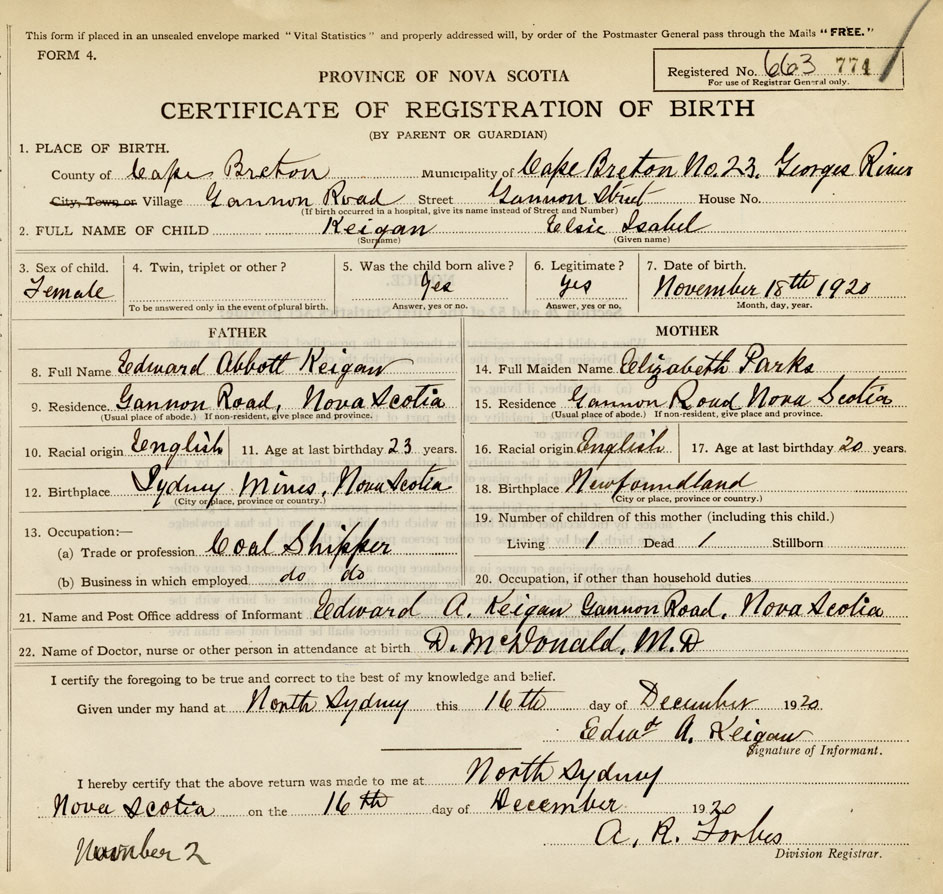 This form if placed in an unsealed envelope marked "Vital Statistics" and properly addressed will, by order of the Postmaster General pass through the Mails "FREE."
FORM 4.
Registered No. 663 774
For use of Registrar General only.
PROVINCE OF NOVA SCOTIA
CERTIFICATE OF REGISTRATION OF BIRTH
(BY PARENT OR GUARDIAN)
1. PLACE OF BIRTH.
County of Cape Breton Municipality of Cape Breton No. 23, Georges River
City, Town or Village Gannon Road Street Gannon Street House No.
(If birth occurred in a hospital, give its name instead of Street and Number)
2. FULL NAME OF CHILD Keigan Elsie Isabel
(Surname) (Given name)
3. Sex of child. 4. Twin, triplet or other? 5. Was the child born alive? 6. Legitimate? 7. Date of birth.
Female Yes Yes November 18th 1920
To be answered only in the event of plural birth. Answer, yes or no. Answer, yes or no. Month, day, year.
FATHER
8. Full Name Edward Abbott Keigan
9. Residence Gannon Road, Nova Scotia
(Usual place of abode.) If non-resident, give place and province.
10. Racial origin English 11. Age at last birthday 23 years.
12. Birthplace Sydney Mines, Nova Scotia
(City or place, province or country.)
13. Occupation:—
(a) Trade or profession Coal Shipper
(b) Business in which employed do do
MOTHER
14. Full Maiden Name Elizabeth Parks
15. Residence Gannon Road Nova Scotia
(Usual place of abode.) If non-resident, give place and province.
16. Racial origin English 17. Age at last birthday 20 years.
18. Birthplace Newfoundland
(City or place, province or country.)
19. Number of children of this mother (including this child.)
Living 1 Dead / Stillborn
20. Occupation, if other than household duties
21. Name and Post Office address of Informant Edward A. Keigan Gannon Road, Nova Scotia
22. Name of Doctor, nurse or other person in attendance at birth D. McDonald, M.D
I certify the foregoing to be true and correct to the best of my knowledge and belief.
Given under my hand at North Sydney this 16th day of December 1920
Edwd A. Keigan
Signature of Informant.
I hereby certify that the above return was made to me at North Sydney
Nova Scotia on the 16th day of December 1920
A. R. Forbes
Division Registrar.
Number 2